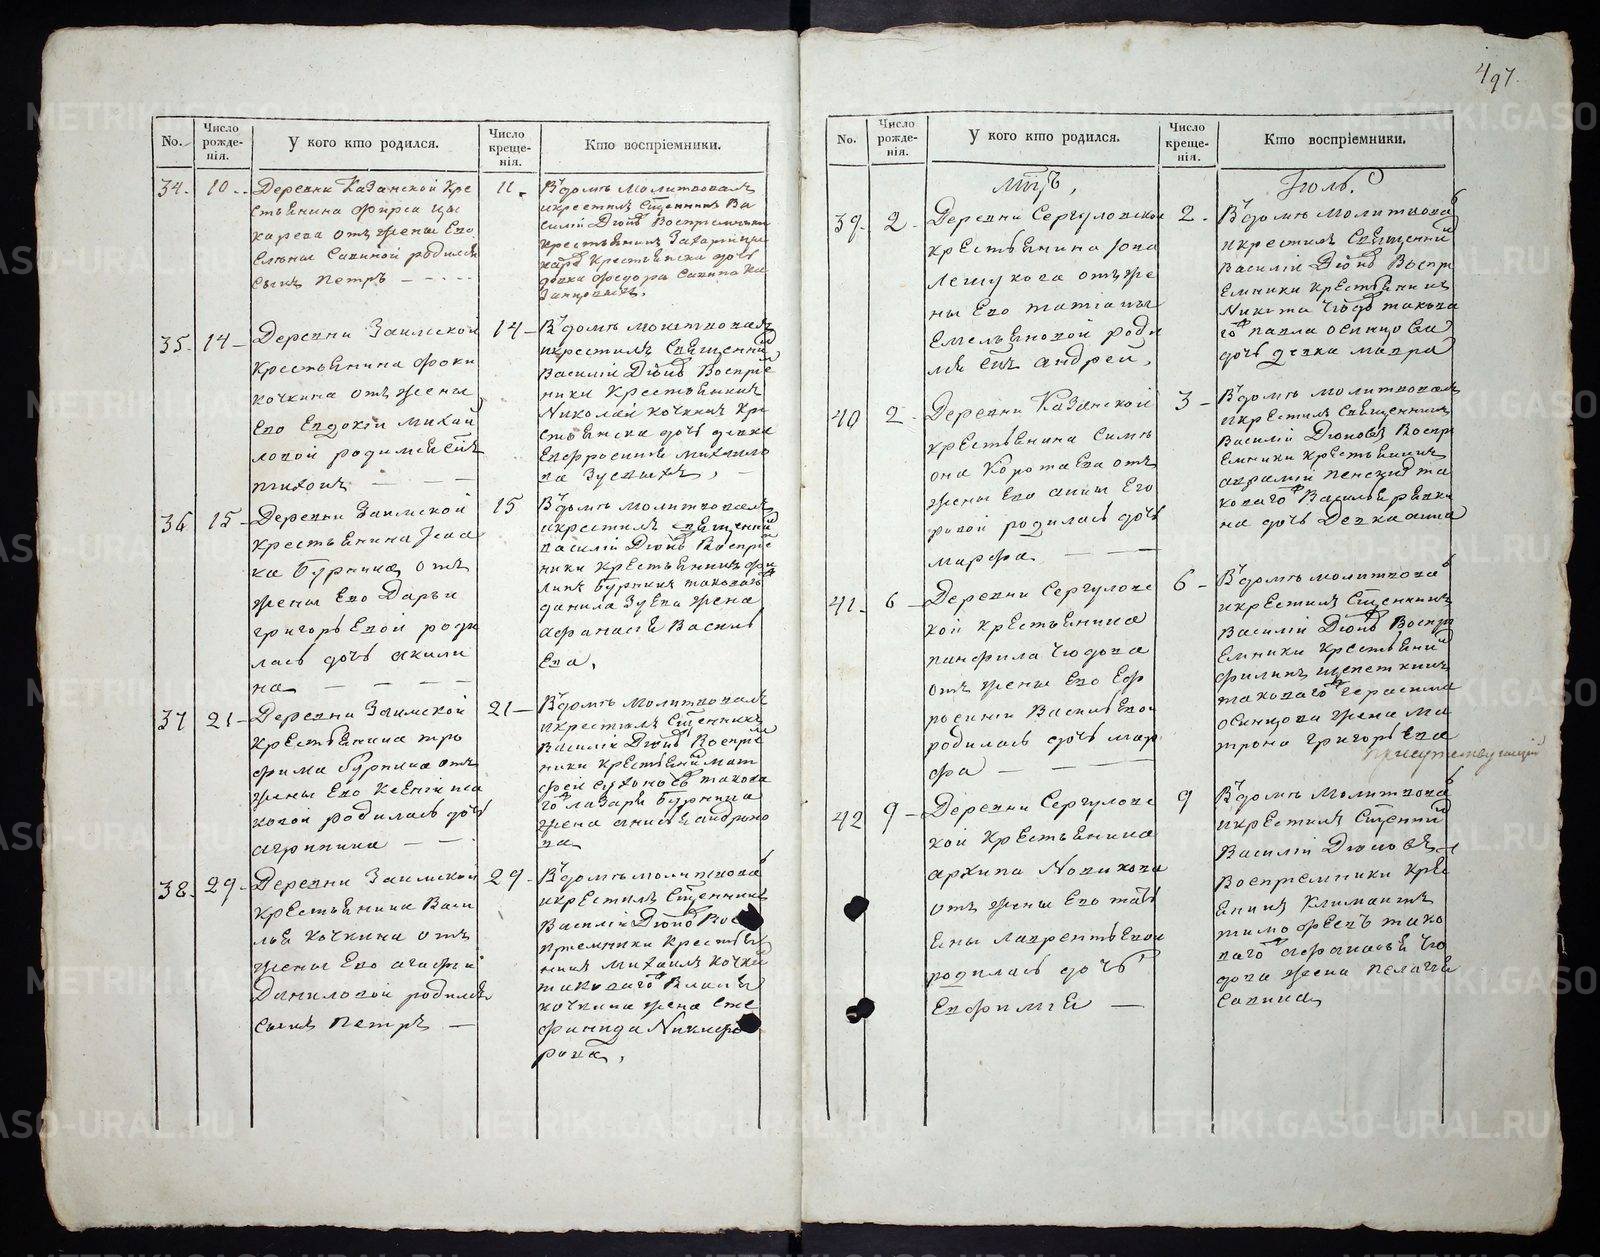 497.
No.
Число рожде-нія.
У кого кто родился.
Число креще-нія.
Кто воспріемники.
34. 10
Деревни Казанской кре
стьянина Фирса
отъ жены Ево
Елены Савиной родился
сынъ Петръ
11.
Въ домѣ молитвовалъ
и крестилъ Сщенникъ Ва
силій
крестьянинъ
крестьянска дочь
девка Федора Савина
35. 14
Деревни Заимской
крестьянина Фоки
Кочкина отъ жены
Ево Евдокіи Михай
ловой родился сынъ
Тихонъ
14
Въ домѣ молитвовалъ
и крестилъ Священник
Василій Воспріе
ники крестьянинъ
Николай Кочкинъ кре
стьянска дочь девка
Евфросинія Михайло
ва
36 15
Деревни Заимской
крестьянина Исаа
ка Бурнина отъ
жены Ево Дарьи
Григорьевой роди
лась дочь Акили
на
15
Въ домѣ молитвовалъ
и крестилъ священник
Василій Воспріе
ники крестьянинъ Фи
липъ Бурнинъ таковаго
Данила Зуева жена
Афанасія Василь
ева,
37 21
Деревни Заимской
крестьянина Тро
фима Бурнина отъ
жены Ево Ксеніи
родилась дочь
Агрипина
21
Въ домѣ молитвовалъ
и крестилъ Сщенникъ
Василій Воспріе
ники крестьянин Мат
фей такова
го Лазаря Бурнина
жена Анисья Андроно
ва
38. 29
Деревни Заимской
крестьянина Васи
лья Кочкина отъ
жены Ево Агафьи
Даниловой родился
сынъ Петръ
29
Въ домѣ молитвова
и крестилъ Сщенникъ
Василій Вос
пріемники крестья
нинъ Михаилъ Кочкин
таковаго Власа
Кочкина жена Сте
фанида Никифо
рова,
No.
Число рожде-нія.
У кого кто родился.
Число креще-нія.
Кто воспріемники.
мцъ, Іюль.
39. 2
Деревни Сергуловской
крестьянина Іова
Лешукова отъ же
ны Ево Татіаны
Емельяновой роди
лся снъ Андрей,
2
Въ домѣ молитвова
и крестилъ Священник
Василій Воспрі
емники крестьянинъ
Никита Чюдо такова
го Павла Осинцова
дочь девка Мавра
40 2
Деревни Казанской
крестьянина Симе
она Коротаева отъ
жены Ево Анны Его
ровой родилась дочь
Марфа
3
Въ домѣ молитвовалъ
и крестилъ Священникъ
Василій Дюковъ Воспрі
емники крестьянинъ
Аврамій Пенский та
коваго Василья
на дочь Девка Анна
41 6
Деревни Сергуловс
кой крестьянина
Панфила Чюдова
отъ жены Ево Еф
росиніи Васильевой
родилась дочь Мар
фа
6
Въ домѣ молитвова
и крестилъ Сщенникъ
Василій Воспрі
емники крестьянин
Филипъ Щепеткинъ
таковаго Герасима
Осинцова жена Ма
трона Григорьева
присутствующій
42 9
Деревни Сергуловс
кой крестьянина
Архипа Новикова
отъ жены Ево Тать
яны Лаврентьевой
родилась дочь
Евфимія
9
Въ домѣ молитвова
и крестилъ Сщенник
Василій Дюковъ
Воспріемники крес
янинъ Климантъ
Тимофеевъ тако
ваго Афанасья Чю
дова жена Пелагія
Савина
METRIKI.GASO-URAL.RU